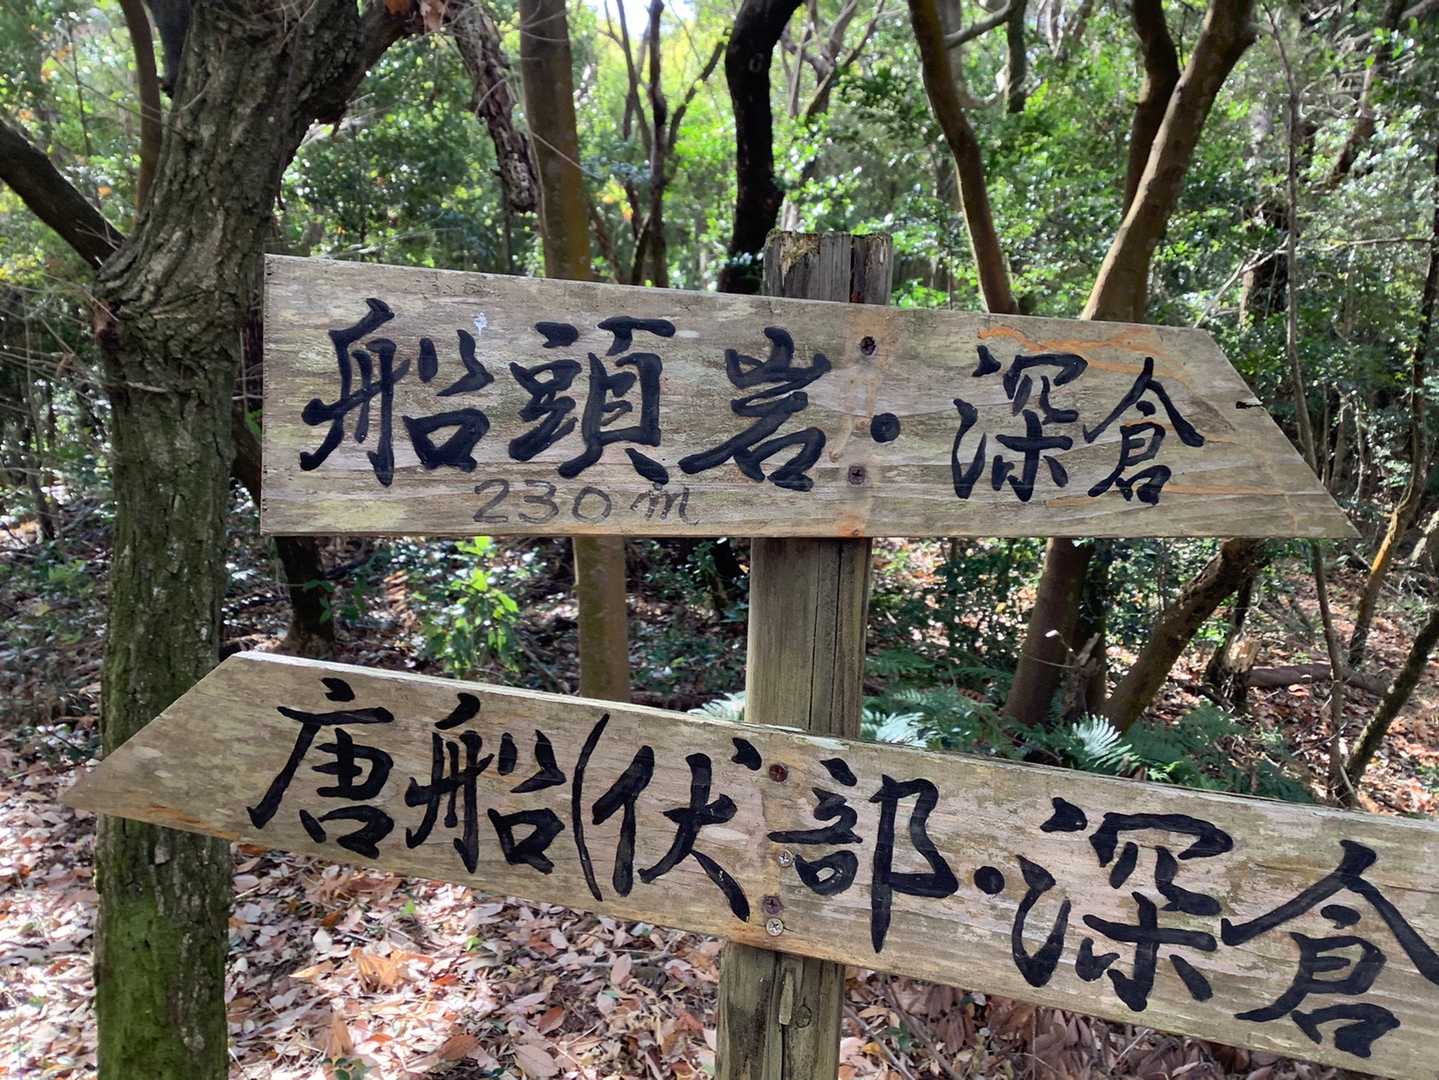 船頭岩・深倉
230m
唐船(伏部・深倉